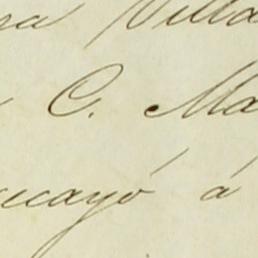 ra Villa
C. Ma
cayó á